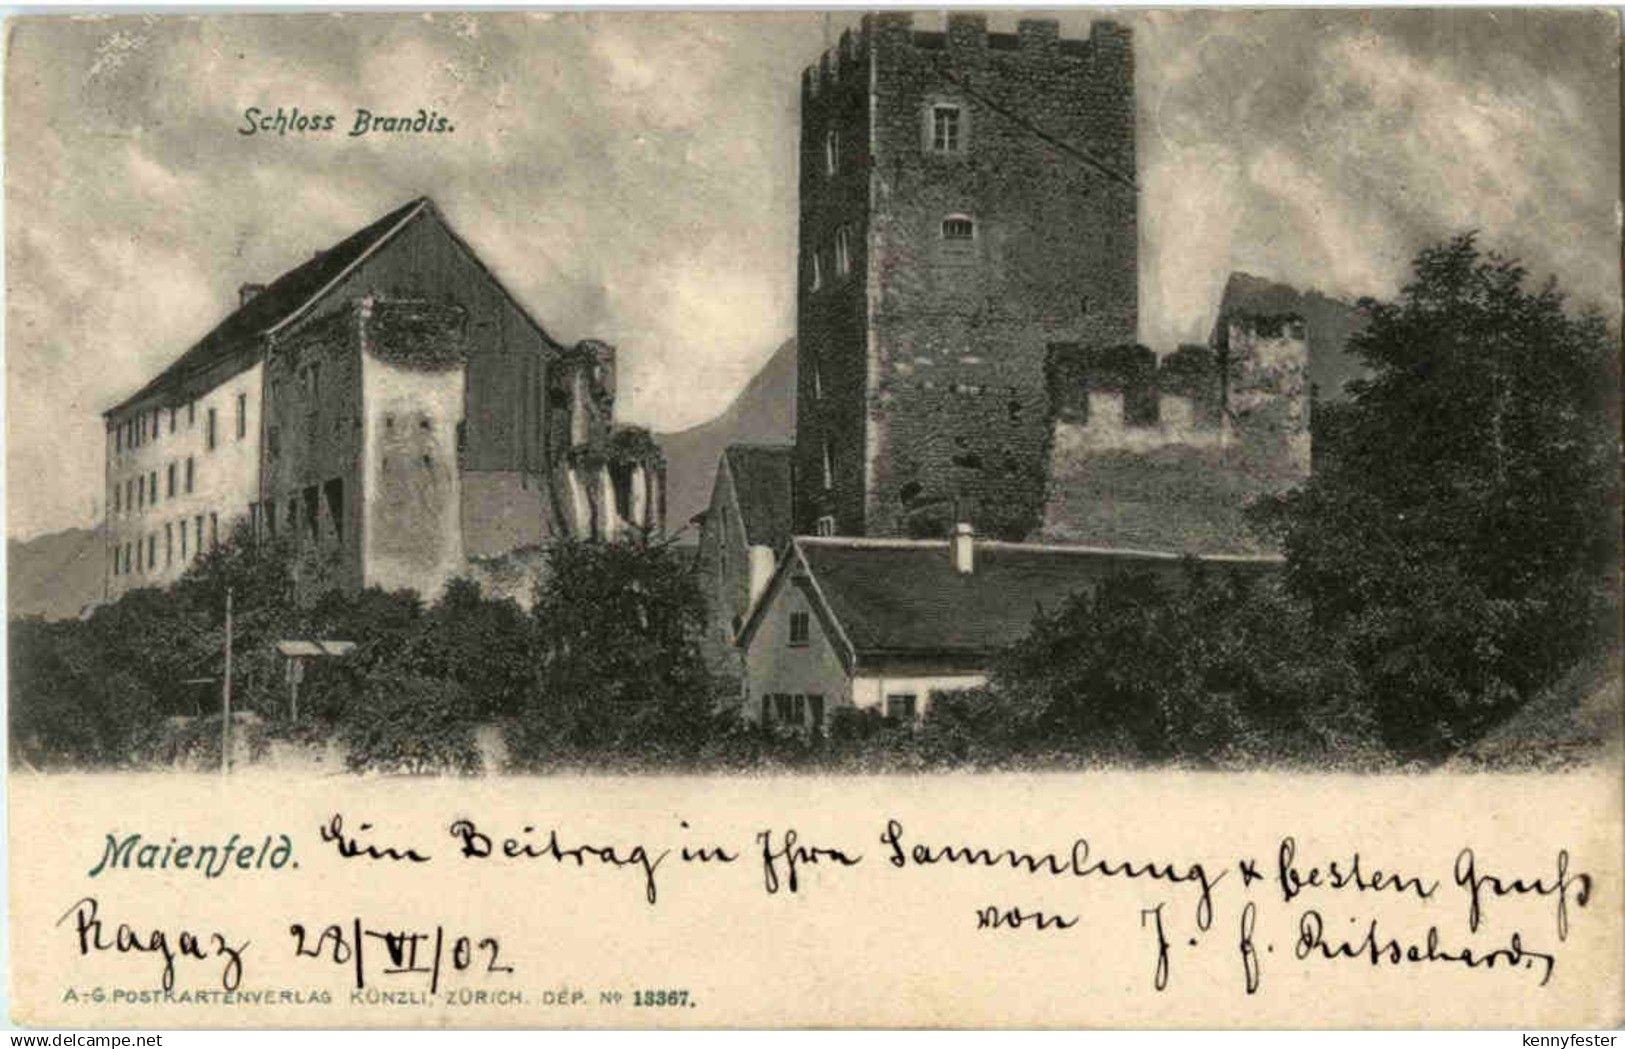 Schloss Brandis.
Maienfeld. Ein Beitrag in Ihre Sammlung & besten Gruß
von J. F. Ritschard,
Ragaz 28/VI/02
A.-G. POSTKARTENVERLAG KÜNZLI, ZÜRICH. DÉP. No 13367.
Maienfeld
kennyfester